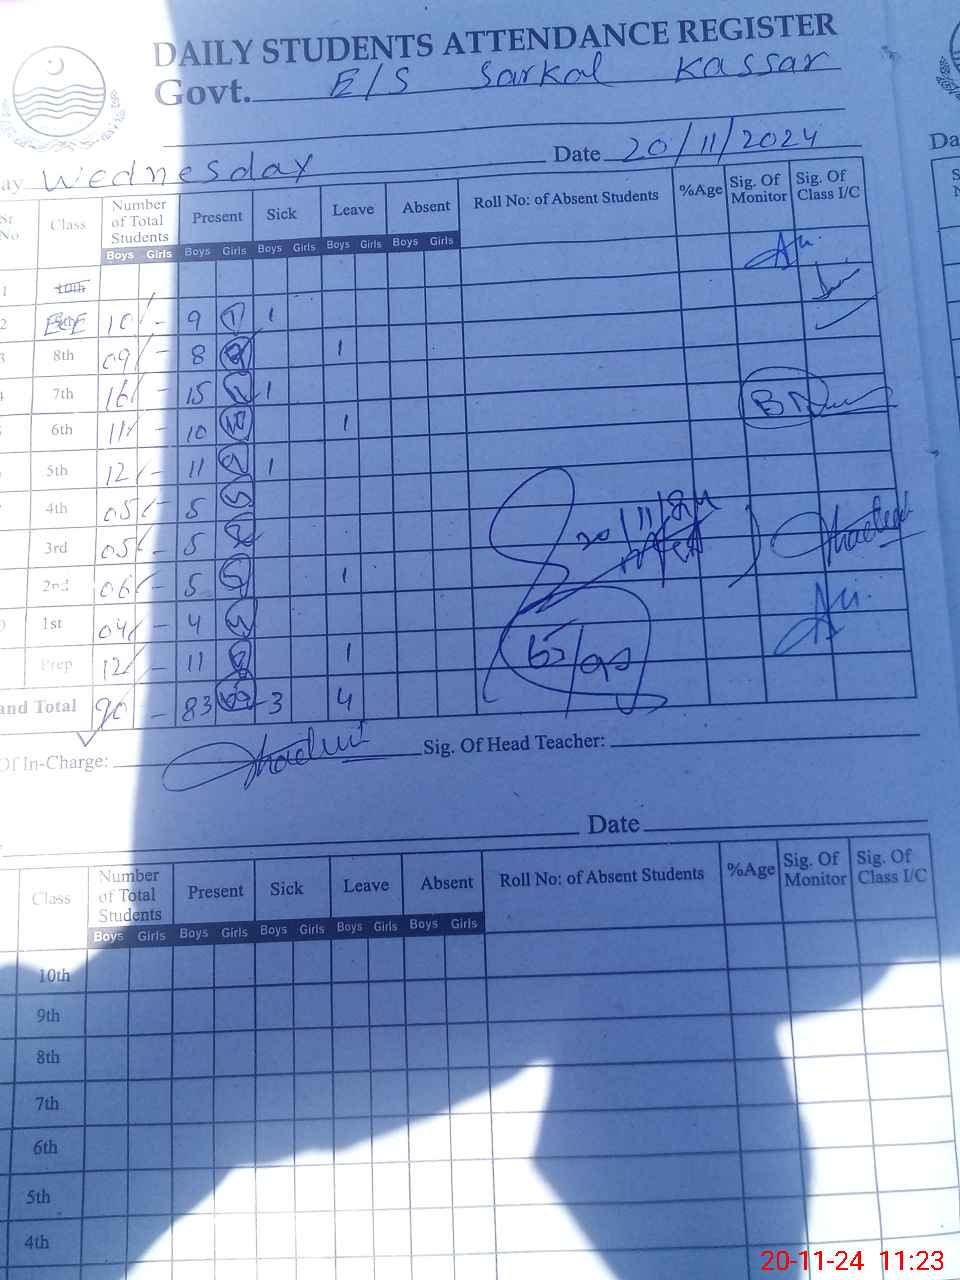 DAILY STUDENTS ATTENDANCE REGISTER
Govt. E/S Sarkal Kassar
ay Wednesday Date 20/11/2024
Sr. No Class Number of Total Students Present Sick Leave Absent Roll No: of Absent Students %Age Sig. Of Monitor Sig. Of Class I/C
Boys Girls Boys Girls Boys Girls Boys Girls Boys Girls
1 10th
2 ECE 10 - 9 1
3 8th 09 - 8 1
7th 16 - 15 1
6th 11 - 10 1
5th 12 - 11 1
4th 05 - 5
3rd 05 - 5
2nd 06 - 5 1
1st 04 - 4
Prep 12 - 11 1
and Total 90 - 83 3 4
Of In-Charge: Sig. Of Head Teacher:
Date
Class Number of Total Students Present Sick Leave Absent Roll No: of Absent Students %Age Sig. Of Monitor Sig. Of Class I/C
Boys Girls Boys Girls Boys Girls Boys Girls Boys Girls
10th
9th
8th
7th
6th
5th
4th
20-11-24 11:23